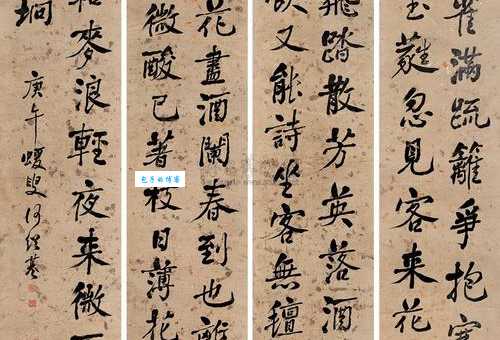 雀滿疏籬爭抱寒
玉蕤忽見客來花
飛踏散芳英落酒
飲又能詩坐客無氊
花盡酒闌春到也離
微酸已著枝日薄花
和麥浪輕夜來微
坰
庚午蝯叟何紹基